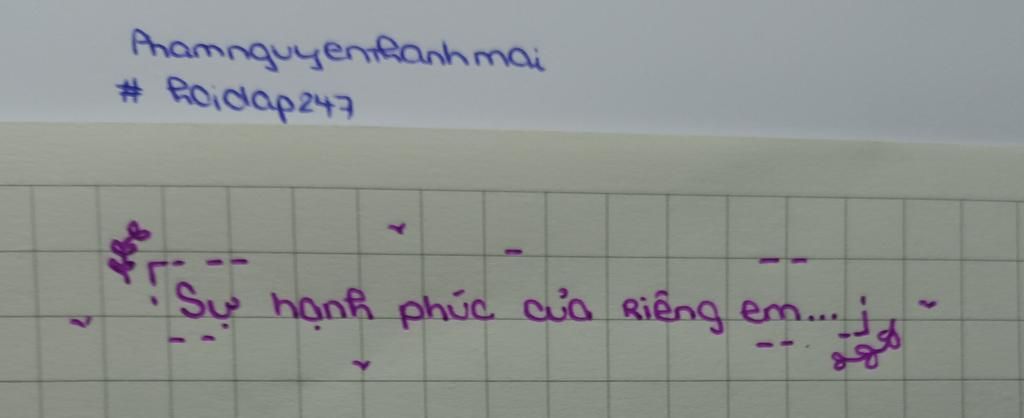 Phamnguyenthanhmai
# hoidap247
Sự hạnh phúc của riêng em...